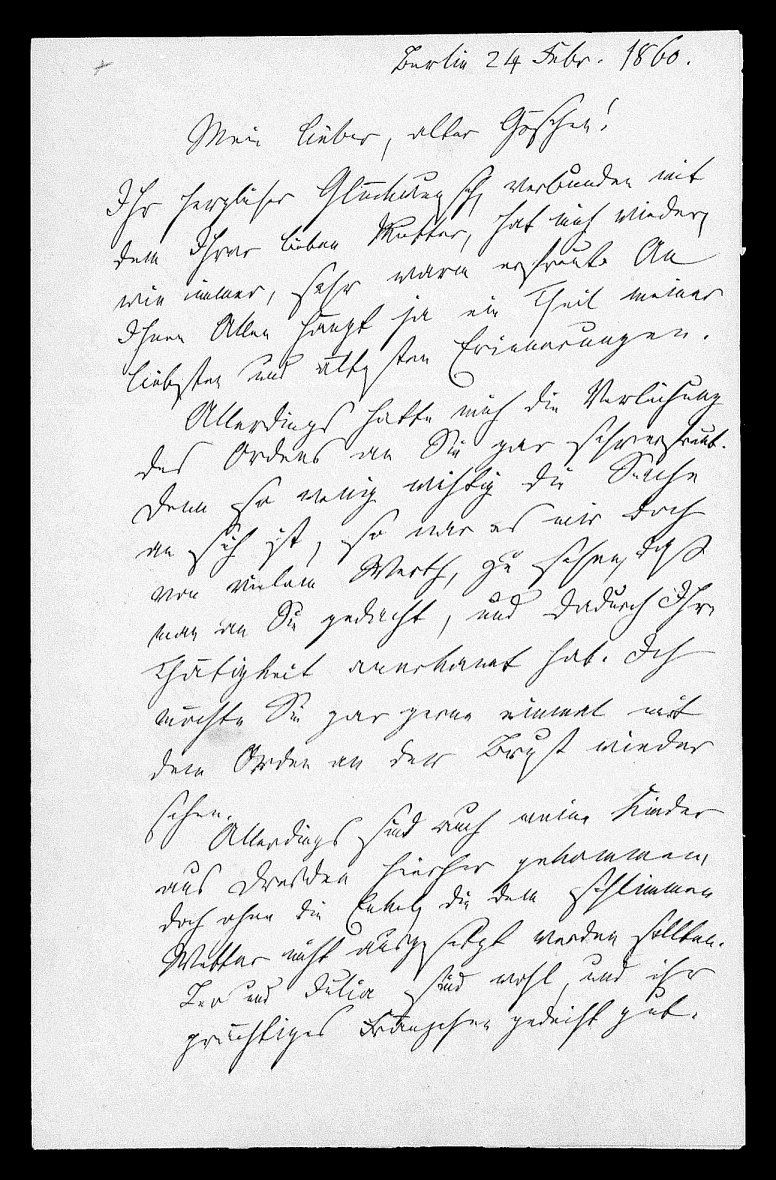 Berlin 24 Febr. 1860.
Mein lieber, alter Göschen!
Ihr herzlicher Glückwunsch, verbunden mit
dem Ihrer lieben Mutter, hat mich wieder,
wie immer, sehr warm erfreut. An
Ihnen Allen hängt ja ein Theil meiner
liebsten und ältesten Erinnerungen.
Allerdings hatte mich die Verleihung
des Ordens an Sie gar sehr erfreut.
Denn so wenig wichtig die Sache
an sich ist, so war es mir doch
von vielem Werth, zu sehen, daß
man an Sie gedacht, und dadurch Ihre
Thätigkeit anerkannt hat. Ich
möchte Sie gar gerne einmal mit
dem Orden an der Brust wieder
sehen.
Allerdings sind auch meine Kinder
aus Dresden hierher gekommen,
doch ohne die Enkel, die dem schlimmen
Wetter nicht ausgesetzt werden sollten.
Leo und Julia sind wohl, und ihr
prächtiges Fränzchen gedeiht gut.